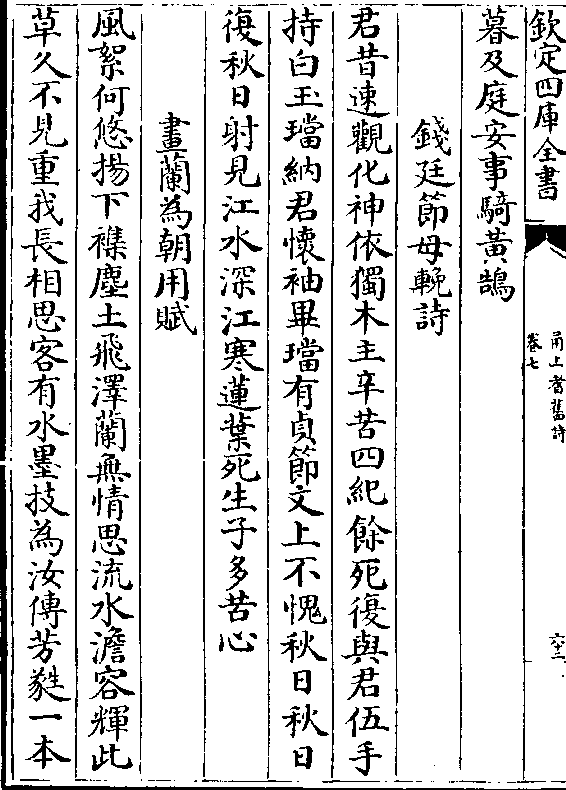 欽定四庫全書
甬上耆舊詩
卷七
六十二
暮及庭安事騎黃鵠
錢廷節母輓詩
君昔速觀化神依獨木主辛苦四紀餘死復與君伍手
持白玉璫納君懷袖畢璫有貞節文上不愧秋日秋日
復秋日射見江水深江寒蓮葉死生子多苦心
畫蘭為朝用賦
風絮何悠揚下襍塵土飛澤蘭無情思流水澹容輝此
草久不見重我長相思客有水墨技為汝傳芳甤一本